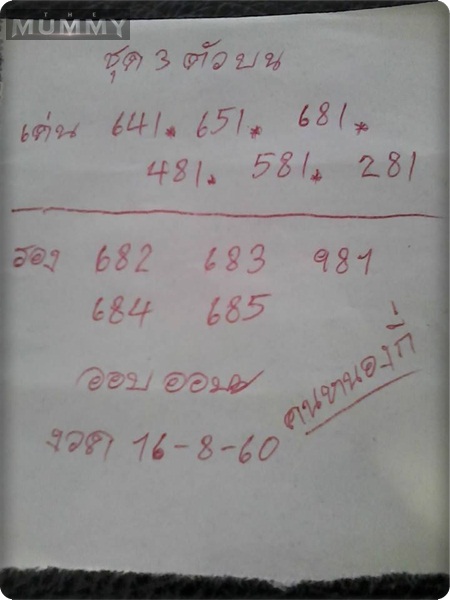 THE
MUMMY
ชุด 3 ตัวบน
เด่น 641* 651* 681*
481* 581* 281
รอง 682 683 981
684 685
ออม
งวด 16-8-60
คนหนองกี่